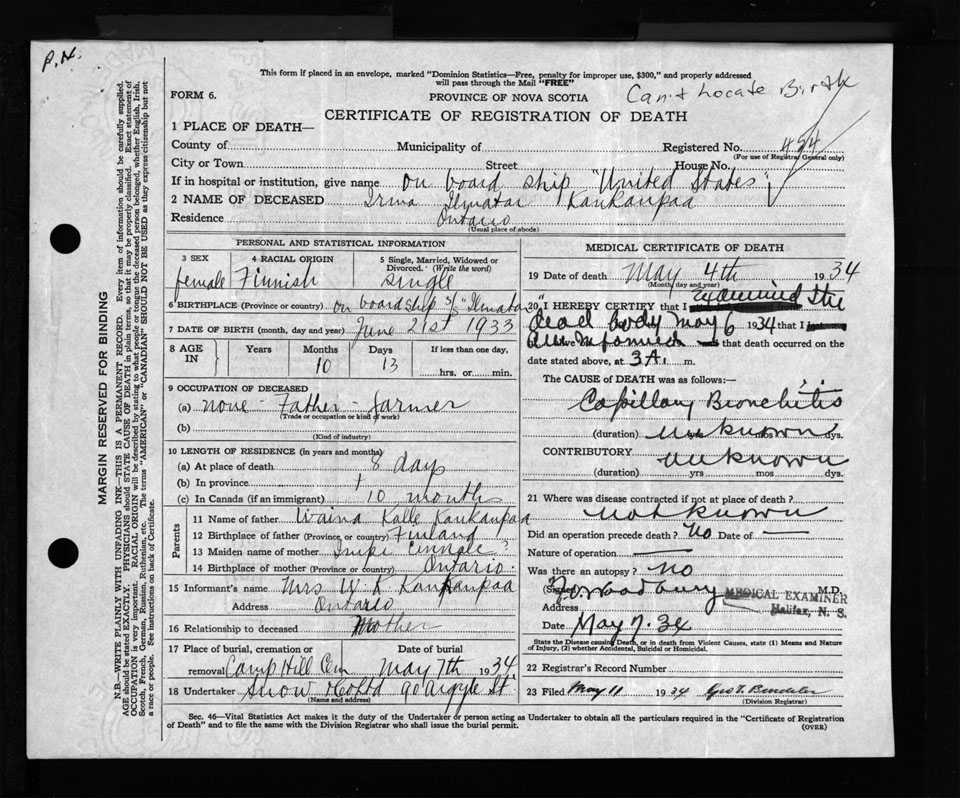 P.H.
This form if placed in an envelope, marked "Dominion Statistics—Free, penalty for improper use, $300," and properly addressed
will pass through the Mail "FREE"
FORM 6.
PROVINCE OF NOVA SCOTIA
Can't Locate Birth
CERTIFICATE OF REGISTRATION OF DEATH
1 PLACE OF DEATH—
County of Municipality of Registered No. 454
(For use of Registrar General only)
City or Town Street House No.
If in hospital or institution, give name on board ship "United States"
2 NAME OF DECEASED Irma Ilmatar Kankanpaa
Residence Ontario
(Usual place of abode)
PERSONAL AND STATISTICAL INFORMATION
3 SEX 4 RACIAL ORIGIN 5 Single, Married, Widowed or
Divorced. (Write the word)
female Finnish Single
6 BIRTHPLACE (Province or country) on board ship S/S "Ilmatar"
7 DATE OF BIRTH (month, day and year) June 21st 1933
8 AGE IN Years Months Days If less than one day,
10 13 hrs. or min.
9 OCCUPATION OF DECEASED
(a) none - Father - farmer
(Trade or occupation or kind of work)
(b)
(Kind of industry)
10 LENGTH OF RESIDENCE (in years and months)
(a) At place of death 8 days
(b) In province
(c) In Canada (if an immigrant) 10 month
Parents
11 Name of father Waina Kalle Kankanpaa
12 Birthplace of father (Province or country) Finland
13 Maiden name of mother Impi ?
14 Birthplace of mother (Province or country) Ontario
15 Informant's name Mrs W. K Kankanpaa
Address Ontario
16 Relationship to deceased Mother
17 Place of burial, cremation or Date of burial
removal Camp Hill Cem May 7th 1934
18 Undertaker Snow & Co Ltd 90 Argyle St.
(Name and address)
MEDICAL CERTIFICATE OF DEATH
19 Date of death May 4th 1934
(Month, day and year)
20 I HEREBY CERTIFY that I examined the
dead body May 6 1934 that I
am informed that death occurred on the
date stated above, at 3 A. m.
The CAUSE of DEATH was as follows:—
Capillary Bronchitis
(duration) unknown mos dys.
CONTRIBUTORY unknown
(duration) yrs mos dys.
21 Where was disease contracted if not at place of death?
not known
Did an operation precede death? No Date of —
Nature of operation —
Was there an autopsy? no
(Signed) Woodbury M.D.
MEDICAL EXAMINER
Halifax, N. S.
Address
Date May 7. 34
State the Disease causing Death, or in death from Violent Causes, state (1) Means and Nature
of Injury, (2) whether Accidental, Suicidal or Homicidal.
22 Registrar's Record Number
23 Filed May 11 1934 Geo T.
(Division Registrar)
Sec. 46—Vital Statistics Act makes it the duty of the Undertaker or person acting as Undertaker to obtain all the particulars required in the "Certificate of Registration
of Death" and to file the same with the Division Registrar who shall issue the burial permit.
(OVER)
MARGIN RESERVED FOR BINDING
N.B.—WRITE PLAINLY WITH UNFADING INK—THIS IS A PERMANENT RECORD. Every item of information should be carefully supplied.
AGE should be stated EXACTLY. PHYSICIANS should STATE CAUSE OF DEATH in plain terms, so that it may be properly classified. Exact statement of
OCCUPATION is very important. RACIAL ORIGIN will be described by stating to what people or tongue the deceased person belonged, whether English, Irish,
Scotch, French, German, Russian, Ruthenian, etc. The terms "AMERICAN" or "CANADIAN" SHOULD NOT BE USED as they express citizenship but not
a race or people. See instructions on back of Certificate.